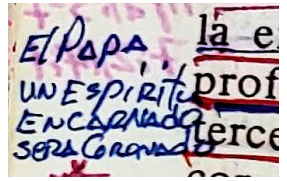 El PAPA
UN ESPÍRITU
ENCARNADO
SERA CORONADO
la e
prof
terce